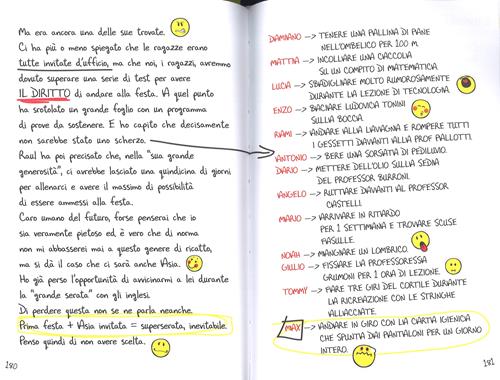 Ma era ancora una delle sue trovate.
Ci ha più o meno spiegato che le ragazze erano
tutte invitate d'ufficio, ma che noi, i ragazzi, avremmo
dovuto superare una serie di test per avere
IL DIRITTO di andare alla festa. A quel punto
ha srotolato un grande foglio con un programma
di prove da sostenere. E ho capito che decisamente
non sarebbe stato uno scherzo.
Raul ha poi precisato che, nella "sua grande
generosità", ci avrebbe lasciato una quindicina di giorni
per allenarci e avere il massimo di possibilità
di essere ammessi alla festa.
Caro umano del futuro, forse penserai che io
sia veramente pietoso ed è vero che di norma
non mi abbasserei mai a questo genere di ricatto,
ma si dà il caso che ci sarà anche Asia.
Ho già perso l'opportunità di avvicinarmi a lei durante
la "grande serata" con gli inglesi.
Di perdere questa non se ne parla neanche.
Prima festa + Asia invitata = superserata, inevitabile.
Penso quindi di non avere scelta.
180
DAMIANO -> TENERE UNA PALLINA DI PANE
NELL'OMBELICO PER 100 M
MATTIA -> INCOLLARE UNA CACCOLA
SU UN COMPITO DI MATEMATICA
LUCA -> SBADIGLIARE MOLTO RUMOROSAMENTE
DURANTE LA LEZIONE DI TECNOLOGIA
ENZO -> BACIARE LUDOVICA TONINI
SULLA BOCCA
RAMI -> ANDARE ALLA LAVAGNA E ROMPERE TUTTI
I GESSETTI DAVANTI ALLA PROF PALLOTTI
ANTONIO -> BERE UNA SORSATA DI PEDILUVIO
DARIO -> METTERE DELL'OLIO SULLA SEDIA
DEL PROFESSOR BURRONI
ANGELO -> RUTTARE DAVANTI AL PROFESSOR
CASTELLI
MARIO -> ARRIVARE IN RITARDO
PER 1 SETTIMANA E TROVARE SCUSE
FASULLE
NOAH -> MANGIARE UN LOMBRICO
GIULIO -> FISSARE LA PROFESSORESSA
GRUMONI PER 1 ORA DI LEZIONE
TOMMY -> FARE TRE GIRI DEL CORTILE DURANTE
LA RICREAZIONE CON LE STRINGHE
ALLACCIATE
MAX -> ANDARE IN GIRO CON LA CARTA IGIENICA
CHE SPUNTA DAI PANTALONI PER UN GIORNO
INTERO
181